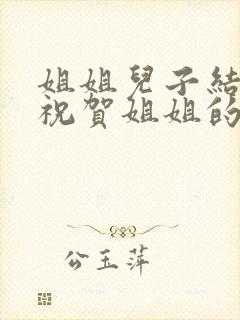 姐姐兒子結
祝賀姐姐的
公玉萍